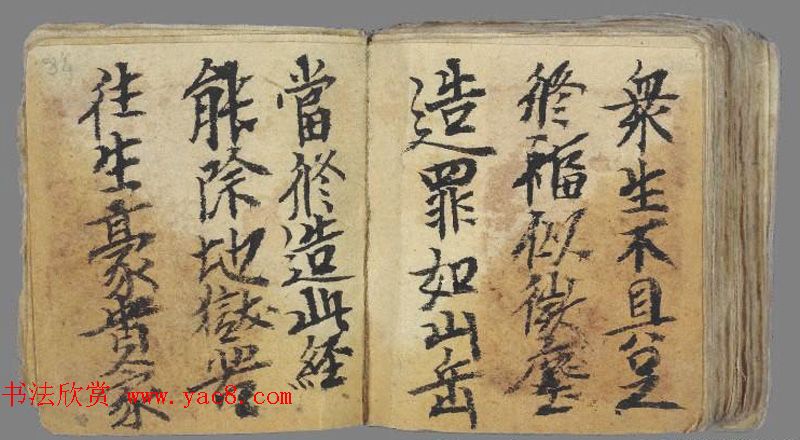 衆生不具足
修福似微塵
造罪如山岳
當修造此經
能除地獄苦
往生豪貴家
34
书法欣赏 www.yac8.com